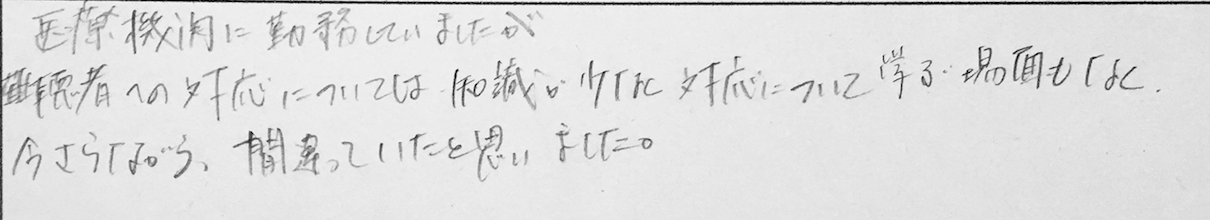 医療機関に勤務していましたが
難聴者への対応については知識が少なく対応について学ぶ場面もなく、
今さらながら、間違っていたと思いました。